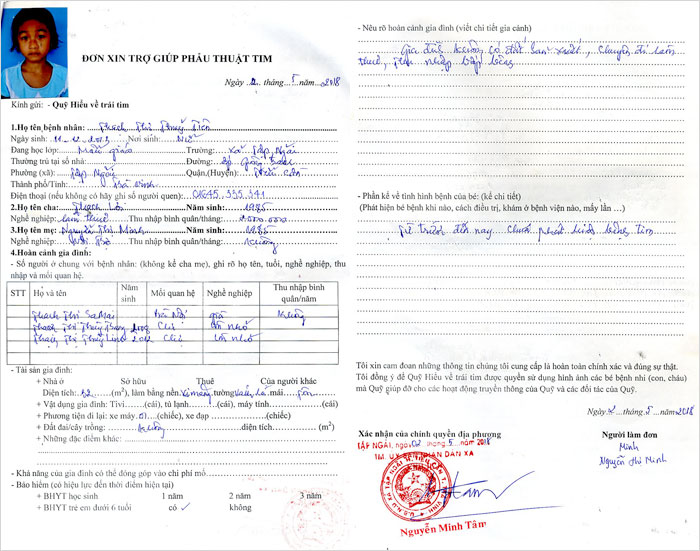 ĐƠN XIN TRỢ GIÚP PHẪU THUẬT TIM
Ngày 2 tháng 5 năm 2018
Kính gửi: - Quỹ Hiểu về trái tim
1.Họ tên bệnh nhân: Thạch Thị Thuỷ Tiên
Ngày sinh: Nơi sinh: Nữ
Đang học lớp: Mẫu giáo Trường: xã Tập Ngãi
Thường trú tại số nhà: Đường:
Phường (xã): Tập Ngãi Quận,(Huyện): Tiểu Cần
Thành phố/Tỉnh: Trà Vinh
Điện thoại (nếu không có hãy ghi số người quen): 01645.335.341
2.Họ tên cha: Thạch Năm sinh: 1985
Nghề nghiệp: làm thuê Thu nhập bình quân/tháng: 1000.000
3.Họ tên mẹ: Nguyễn Thị Minh Năm sinh: 1985
Nghề nghiệp: Nội trợ Thu nhập bình quân/tháng: không
4.Hoàn cảnh gia đình:
- Số người ở chung với bệnh nhân: (không kể cha mẹ), ghi rõ họ tên, tuổi, nghề nghiệp, thu
nhập và mối quan hệ.
STT Họ và tên Năm sinh Mối quan hệ Nghề nghiệp Thu nhập bình quân/năm
Thạch Thị Sa Mai bà Nội già không
Thạch Thị Thuỳ Trang 2008 Chị còn nhỏ
Thạch Thị Thuỳ Linh 2012 Chị còn nhỏ
- Tài sản gia đình:
+ Nhà ở Sở hữu Thuê Của người khác
Diện tích: 32 (m²), làm bằng nền xi măng tường mái tôn
+ Vật dụng gia đình: Tivi (cái), tủ lạnh (cái), máy tính (cái)
+ Phương tiện đi lại: xe máy 01 (chiếc), xe đạp (chiếc)
+ Đất đai/cây trồng: không diện tích (m²)
+ Những đặc điểm khác:
- Khả năng của gia đình có thể đóng góp vào chi phí mổ
- Bảo hiểm (có hiệu lực đến thời điểm hiện tại)
+ BHYT học sinh 1 năm 2 năm 3 năm
+ BHYT trẻ em dưới 6 tuổi có ✓ không
- Nêu rõ hoàn cảnh gia đình (viết chi tiết gia cảnh)
Gia đình không có đất sản xuất, chuyên đi làm
thuê, thu nhập bấp bênh
- Phần kể về tình hình bệnh của bé: (kể chi tiết)
(Phát hiện bé bệnh khi nào, cách điều trị, khám ở bệnh viện nào, mấy lần …)
Từ trước đến nay chưa phát hiện bệnh tim
Tôi xin cam đoan những thông tin chúng tôi cung cấp là hoàn toàn chính xác và đúng sự thật.
Tôi đồng ý để Quỹ Hiểu về trái tim được quyền sử dụng hình ảnh các bé bệnh nhi (con, cháu)
mà Quỹ giúp đỡ cho các hoạt động truyền thông của Quỹ và các đối tác của Quỹ.
Ngày 2 tháng 5 năm 2018
Xác nhận của chính quyền địa phương
TẬP NGÃI, ngày 02 tháng 5 năm 2018
TM. ỦY BAN NHÂN DÂN XÃ
Nguyễn Minh Tâm
Người làm đơn
Minh
Nguyễn Thị Minh